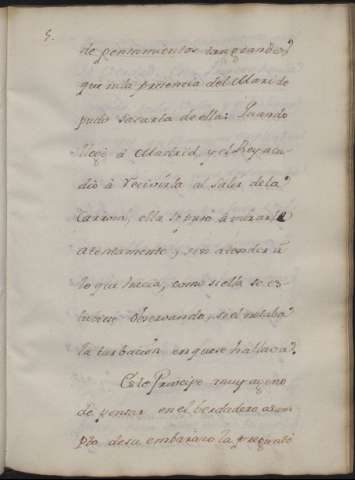 5.
de pensamientos tan grandes,
que ni la presencia del Mari do
pudo sacarla de ella: Quando
llegó á Madrid, y el Rey acu-
dió á recivirla al salir de la
Carroza, ella se puso á mirarle
atentamente y sin atender á
lo que hacia, como si ella se es-
tubiese observando, si el notaba
la turbacion en que se hallava.
Este Principe muy ageno
de pensar en el berdadero asum-
pto de su embarazo la preguntó